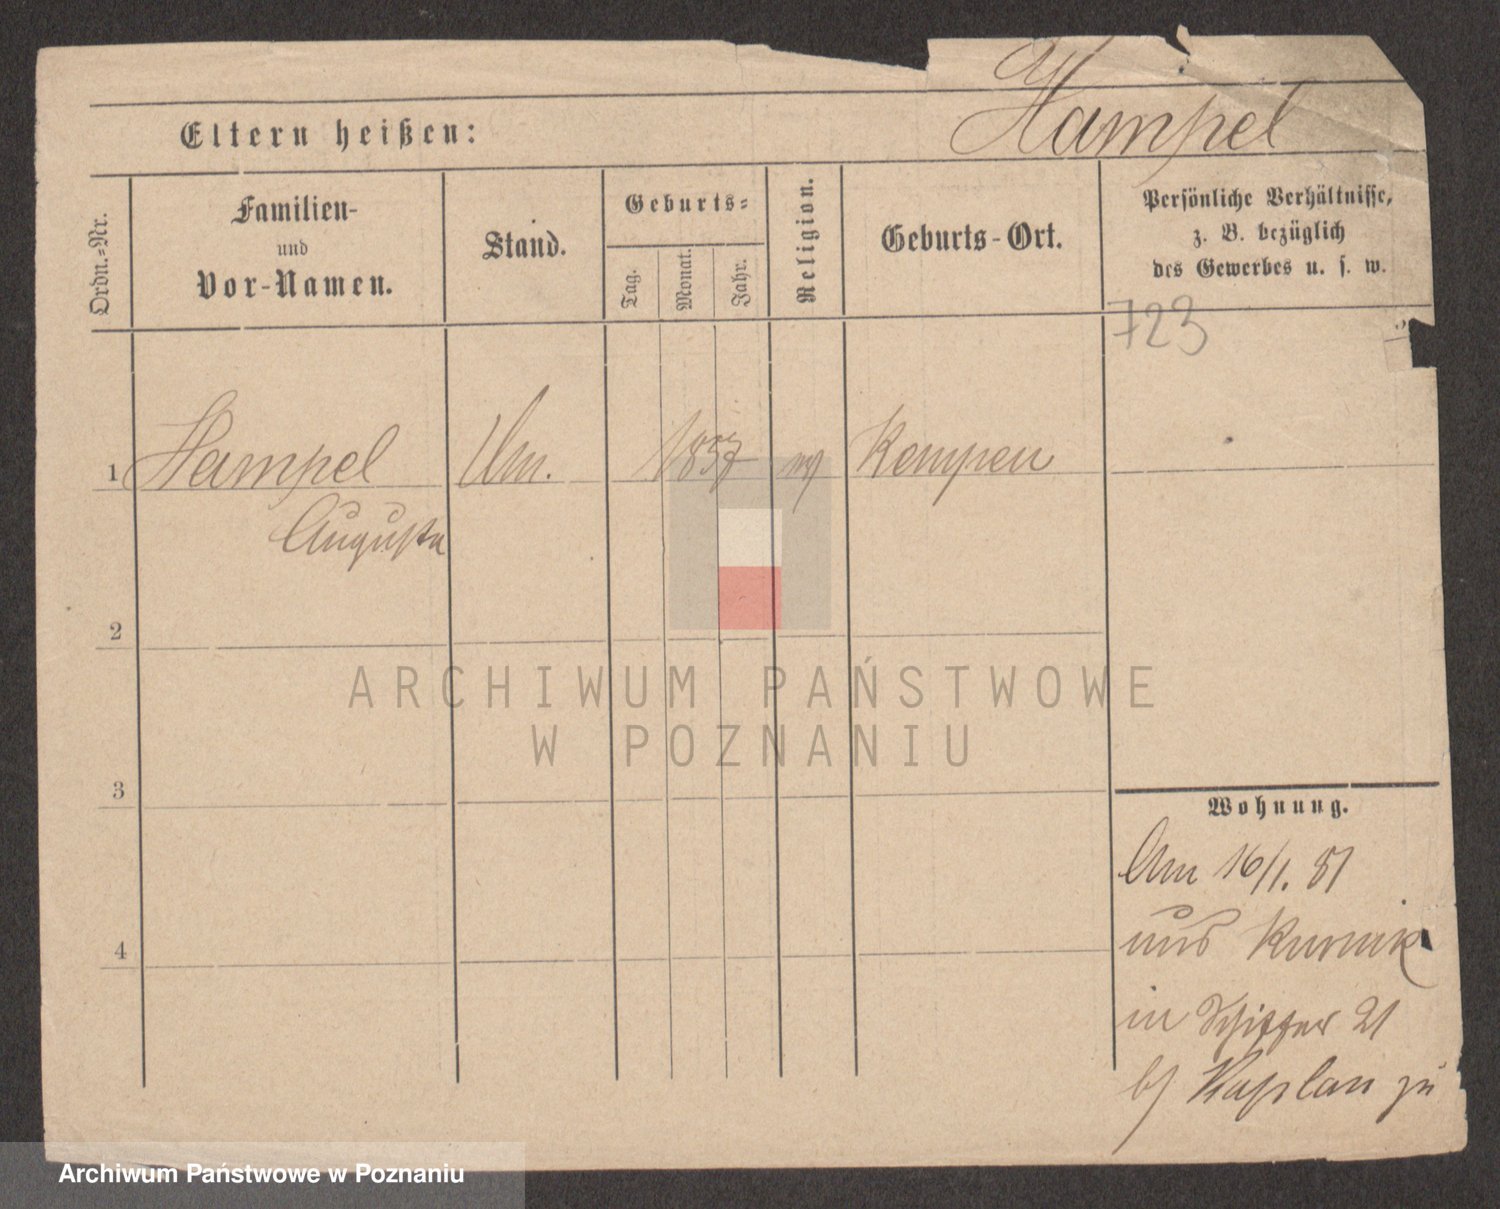 Hampel
Eltern heißen:
Ordn.-Nr.
Familien-
und
Vor-Namen.
Stand.
Geburts-
Tag.
Monat.
Jahr.
Religion.
Geburts-Ort.
Persönliche Verhältnisse,
z. B. bezüglich
des Gewerbes u. s. w.
723
1 Hampel 1857 Kempen
Augusta
2
3
4
Wohnung.
Am 16/1. 81
aus Kurnik
in Schiffer 21
b/ Kaplan zu
ARCHIWUM PAŃSTWOWE
W POZNANIU
Archiwum Państwowe w Poznaniu